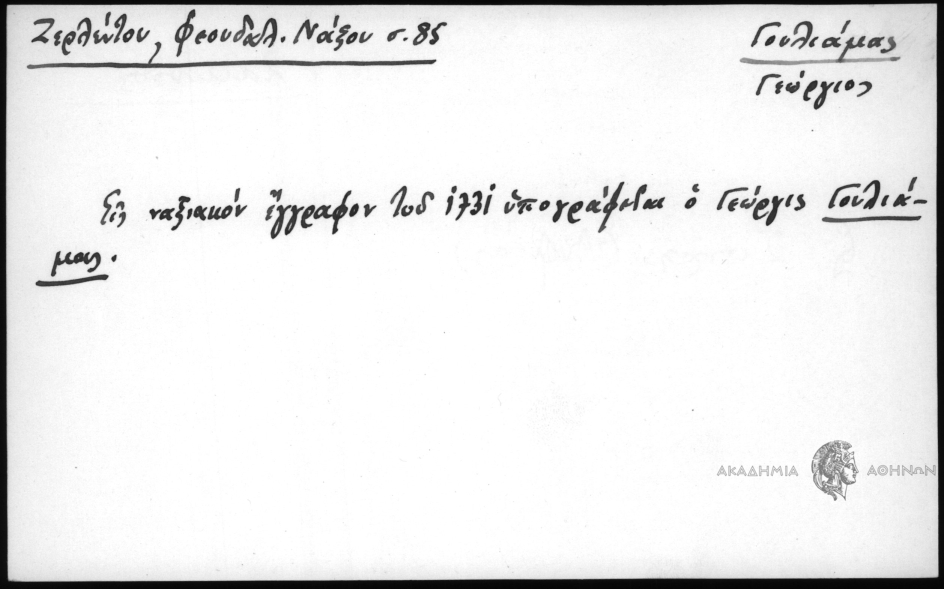 Ζερλέντου, Φεουδαλ. Νάξου σ. 85
Γουλιάμας
Γεώργιος
Εἰς ναξιακόν ἔγγραφον τοῦ 1731 ὑπογράφεται ὁ Γεώργις Γουλιά-
μας.
ΑΚΑΔΗΜΙΑ ΑΘΗΝΩΝ